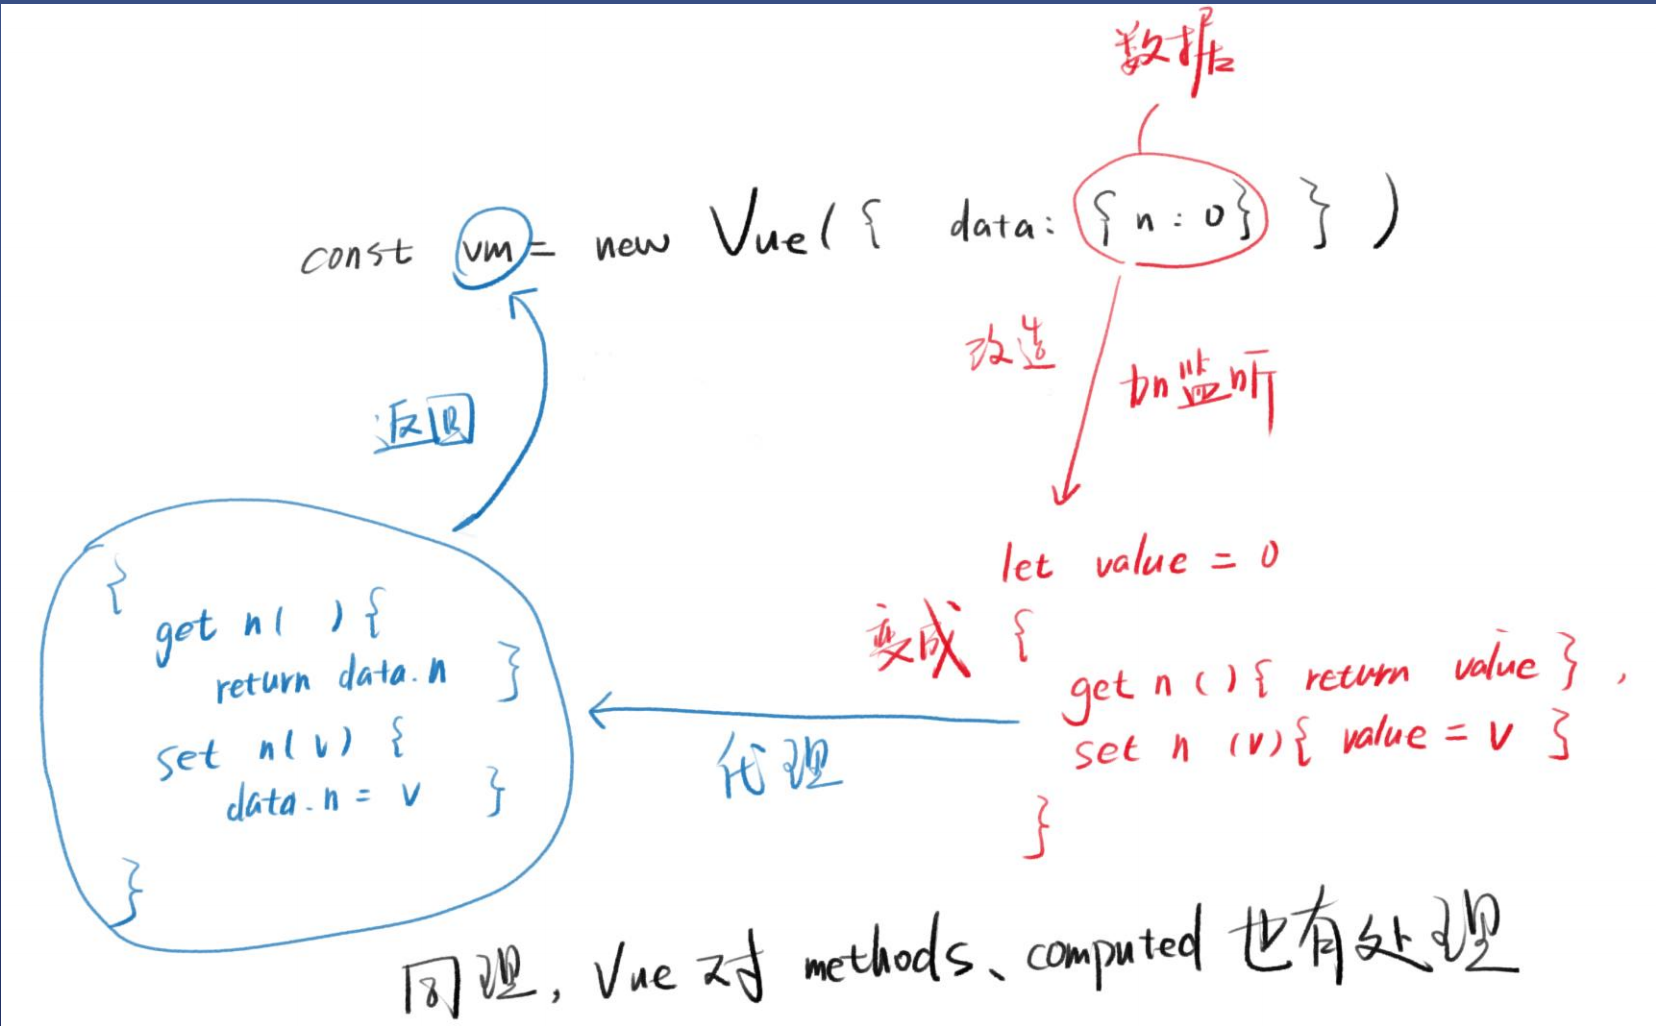 数据
const vm = new Vue({ data: { n : 0 } } )
改造
加监听
返回
let value = 0
变成 {
get n ( ) { return value } ,
set n (v) { value = v }
}
代理
{
get n( ) {
return data.n }
set n(v) {
data.n = v }
}
同理, Vue 对 methods、computed 也有处理